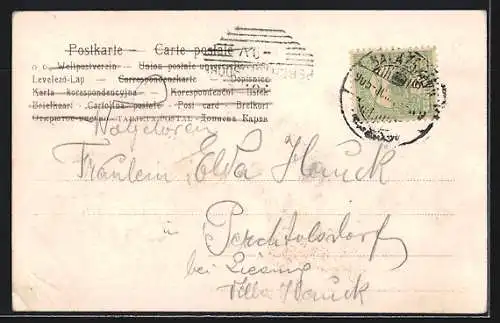 Postkarte — Carte postale
Weltpostverein — Union postale universelle
Levelező-Lap — Correspondenzkarte — Dopisnice
Karta korespondencyjna — Korespondenční lístek
Briefkaart — Cartolina postale — Post card — Brefkort
Открытое письмо — TARJETA POSTAL — Дописна Карта
Fräulein Elsa Hauck
in
Perchtolsdorf
bei Liesing
Villa Hauck